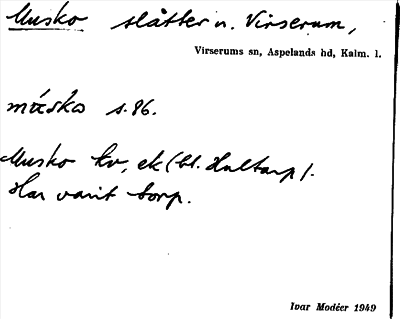 Musko slåtter n. Virserum,
Virserums sn, Aspelands hd, Kalm. l.
s. 86.
Musko kv, ek (bl. Hultarp).
Har varit torp.
Ivar Modéer 1949